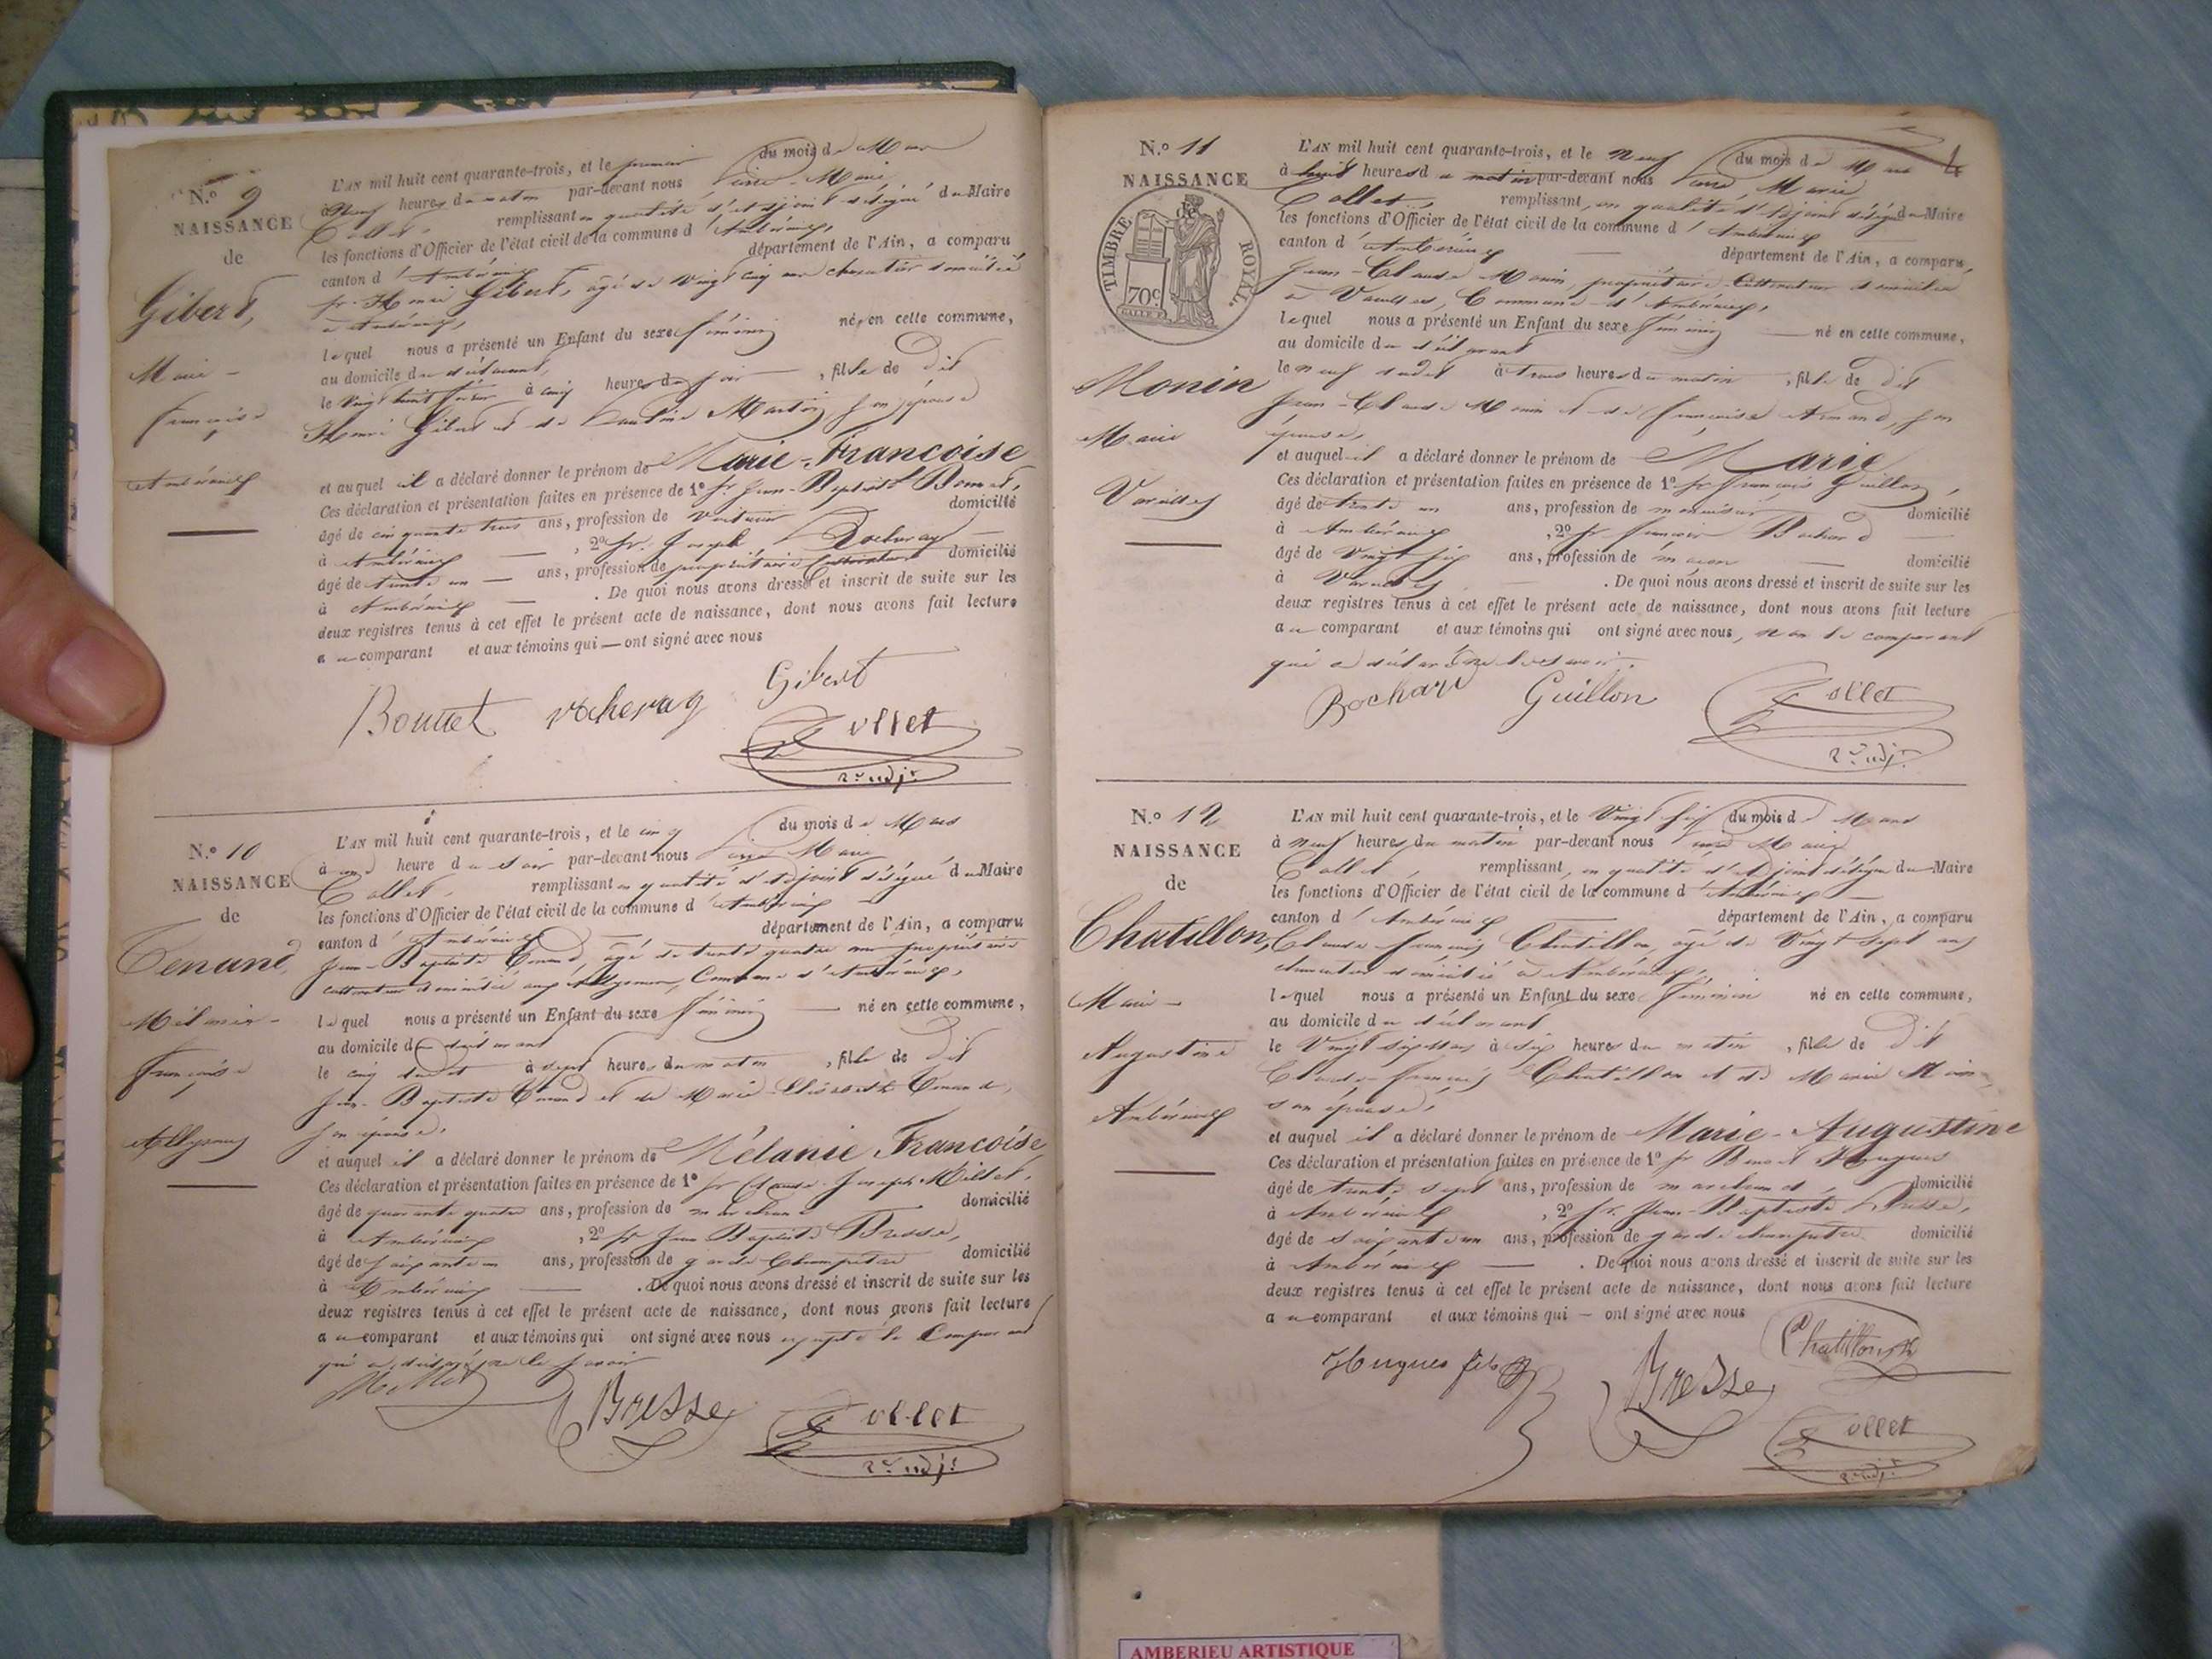 N.º 9
NAISSANCE
de
Gibert,
Marie -
françoise
Ambérieux
L'AN mil huit cent quarante-trois, et le premier du mois de Mars
à neuf heures du matin par-devant nous Marie
Collet, remplissant en qualité d'adjoint délégué du Maire
les fonctions d'Officier de l'état civil de la commune d'Ambérieux,
canton d'Ambérieux département de l'Ain, a comparu
sr. Henri Gibert, âgé de vingt cinq ans charcutier domicilié
à Ambérieux,
lequel nous a présenté un Enfant du sexe féminin né en cette commune,
au domicile du déclarant,
le vingt huit février à cinq heures du soir, fille de dit
Henri Gibert et de Martin son épouse
et auquel il a déclaré donner le prénom de Marie-Francoise
Ces déclaration et présentation faites en présence de 1º sr. Jean-Baptiste Bonnet,
âgé de cinquante trois ans, profession de voiturier domicilié
à Ambérieux, 2º sr. Joseph Vocheray
âgé de trente un ans, profession de propriétaire cultivateur domicilié
à Ambérieux. De quoi nous avons dressé et inscrit de suite sur les
deux registres tenus à cet effet le présent acte de naissance, dont nous avons fait lecture
au comparant et aux témoins qui — ont signé avec nous
Bonnet Vocheray Gibert
Collet
2e adjt
N.º 10
NAISSANCE
de
Tenand,
Mélanie -
françoise
Allymes
L'AN mil huit cent quarante-trois, et le cinq du mois de Mars
à une heure du soir par-devant nous Marie
Collet, remplissant en qualité d'adjoint délégué du Maire
les fonctions d'Officier de l'état civil de la commune d'Ambérieux
canton d'Ambérieux département de l'Ain, a comparu
Jean-Baptiste Tenand, âgé de trente quatre ans propriétaire
cultivateur domicilié aux Allymes, Commune d'Ambérieux,
lequel nous a présenté un Enfant du sexe féminin né en cette commune,
au domicile du déclarant
le cinq dudit à sept heures du matin, fille de dit
Jean-Baptiste Tenand et de Marie Elisabeth Tenand,
son épouse,
et auquel il a déclaré donner le prénom de Mélanie Francoise
Ces déclaration et présentation faites en présence de 1º sr Claude-Joseph Millet,
âgé de quarante quatre ans, profession de marchand domicilié
à Ambérieux, 2º sr Jean Baptiste Bresse,
âgé de soixante un ans, profession de garde champêtre domicilié
à Ambérieux. De quoi nous avons dressé et inscrit de suite sur les
deux registres tenus à cet effet le présent acte de naissance, dont nous avons fait lecture
au comparant et aux témoins qui ont signé avec nous excepté le comparant
qui a déclaré ne le savoir
Millet Bresse Collet
2e adjt
N.º 11
NAISSANCE
TIMBRE ROYAL.
70c
Monin
Marie
Vareilles
4
L'AN mil huit cent quarante-trois, et le neuf du mois de Mars
à huit heures du matin par-devant nous Marie
Collet, remplissant, en qualité d'adjoint délégué du Maire
les fonctions d'Officier de l'état civil de la commune d'Ambérieux
canton d'Ambérieux département de l'Ain, a comparu,
Jean-Claude Monin, propriétaire cultivateur domicilié
à Vareilles, Commune d'Ambérieux,
lequel nous a présenté un Enfant du sexe féminin né en cette commune,
au domicile du déclarant
le neuf dudit à trois heures du matin, fille de dit
Jean-Claude Monin et de françoise Armand, son
épouse,
et auquel il a déclaré donner le prénom de Marie
Ces déclaration et présentation faites en présence de 1º sr françois Guillon,
âgé de trente un ans, profession de menuisier domicilié
à Ambérieux, 2º sr françois Bochard
âgé de vingt six ans, profession de maçon domicilié
à Vareilles. De quoi nous avons dressé et inscrit de suite sur les
deux registres tenus à cet effet le présent acte de naissance, dont nous avons fait lecture
au comparant et aux témoins qui ont signé avec nous, non le comparant
qui a déclaré ne le savoir.
Bochard Guillon Collet
2e adjt
N.º 12
NAISSANCE
de
Chatillon,
Marie -
Augustine
Ambérieux
L'AN mil huit cent quarante-trois, et le vingt six du mois de Mars
à neuf heures du matin par-devant nous Marie
Collet, remplissant, en qualité d'adjoint délégué du Maire
les fonctions d'Officier de l'état civil de la commune d'Ambérieux
canton d'Ambérieux département de l'Ain, a comparu
Claude françois Chatillon, âgé de vingt sept ans
domicilié à Ambérieux,
lequel nous a présenté un Enfant du sexe féminin né en cette commune,
au domicile du déclarant
le vingt six mars à six heures du matin, fille de dit
Claude-françois Chatillon et de Marie
son épouse,
et auquel il a déclaré donner le prénom de Marie-Augustine
Ces déclaration et présentation faites en présence de 1º sr Benoit Hugues
âgé de trente sept ans, profession de marchand, domicilié
à Ambérieux, 2º sr. Jean-Baptiste Bresse,
âgé de soixante un ans, profession de garde champêtre domicilié
à Ambérieux. De quoi nous avons dressé et inscrit de suite sur les
deux registres tenus à cet effet le présent acte de naissance, dont nous avons fait lecture
au comparant et aux témoins qui — ont signé avec nous
Chatillon
Hugues fils Bresse
Collet
2e adjt
AMBERIEU ARTISTIQUE